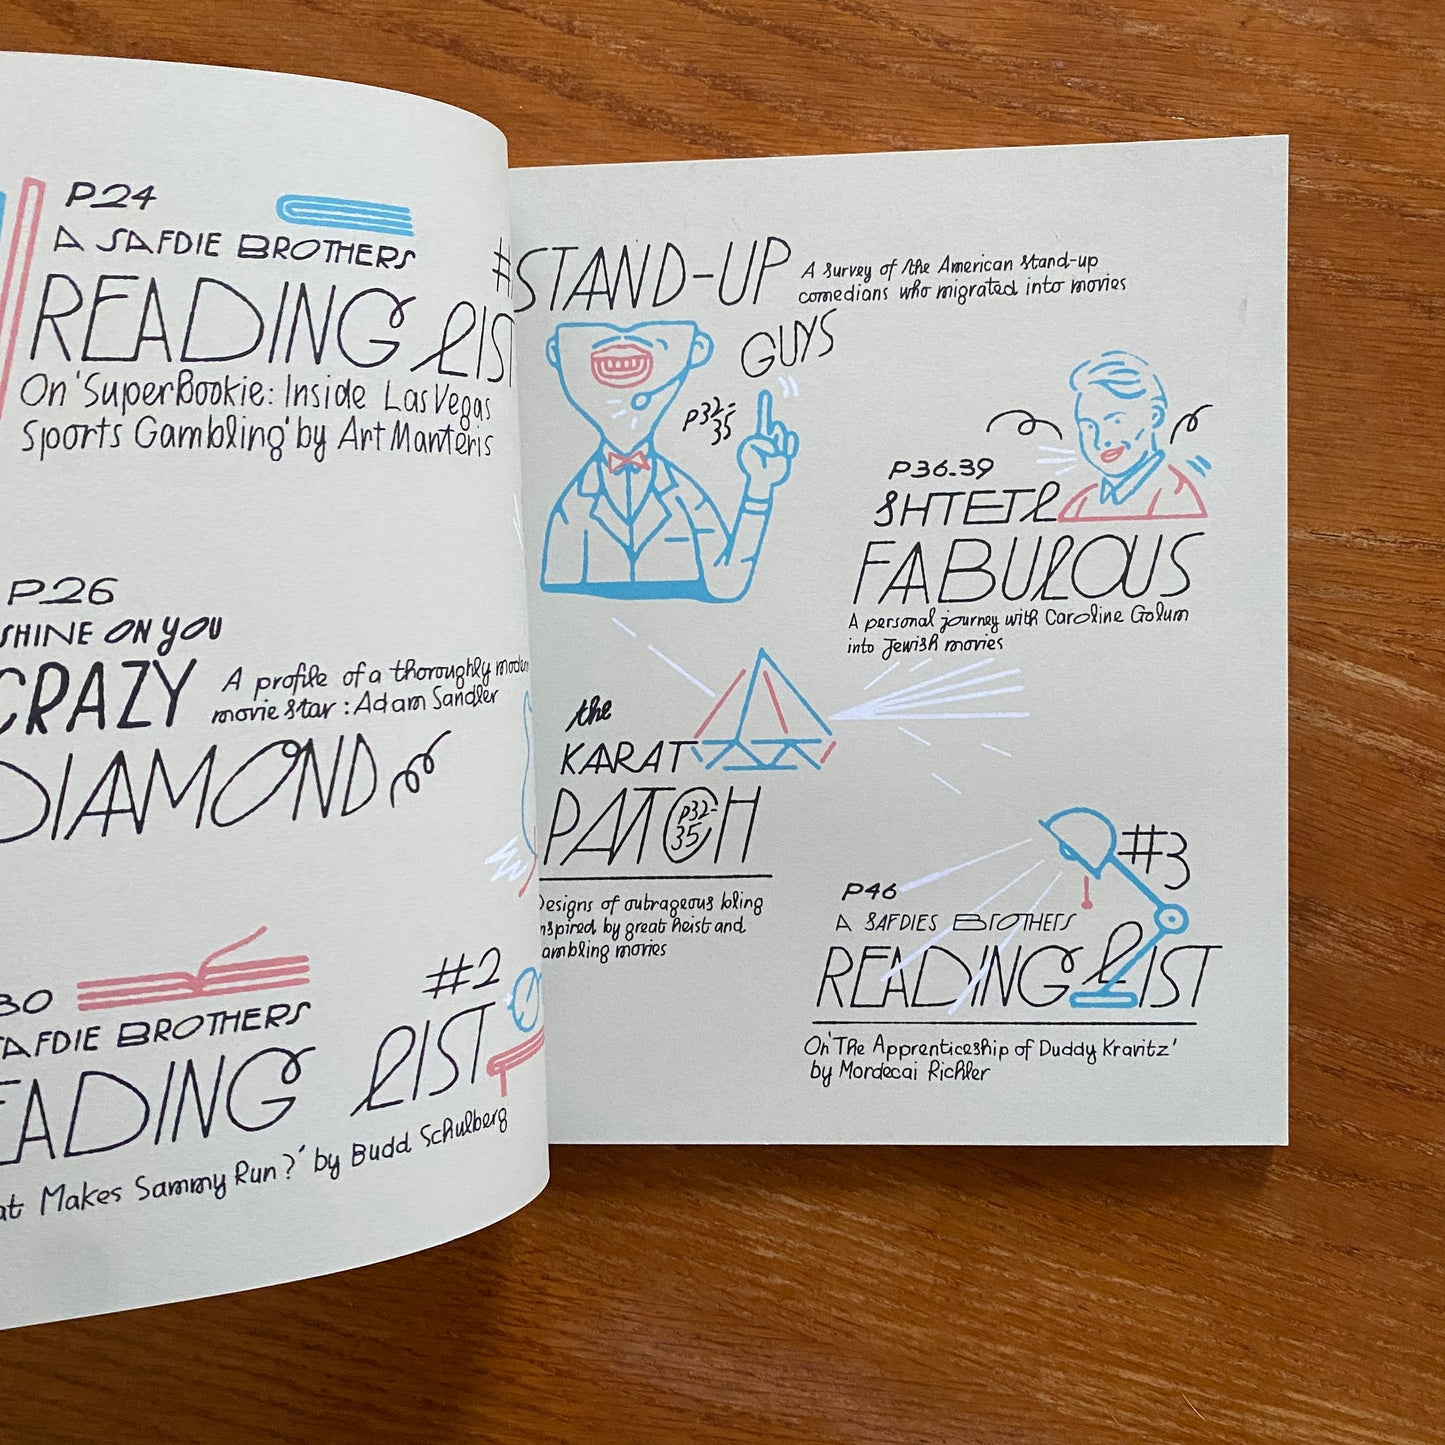 P24
A SAFDIE BROTHERS
READING LIST
On 'SuperBookie: Inside Las Vegas
Sports Gambling' by Art Manteris
P26
SHINE ON YOU
CRAZY
A profile of a thoroughly modern
movie star: Adam Sandler
DIAMOND
#2
SAFDIE BROTHERS
READING LIST
Makes Sammy Run?' by Budd Schulberg
STAND-UP
A survey of the American stand-up
comedians who migrated into movies
GUYS
P32-
35
P36-39
SHTETL
FABULOUS
A personal journey with Caroline Golum
into Jewish movies
the
KARAT
PATCH
P32-
35
Designs of outrageous bling
inspired by great heist and
gambling movies
#3
P46
A SAFDIES BROTHERS
READING LIST
On 'The Apprenticeship of Duddy Kravitz'
by Mordecai Richler